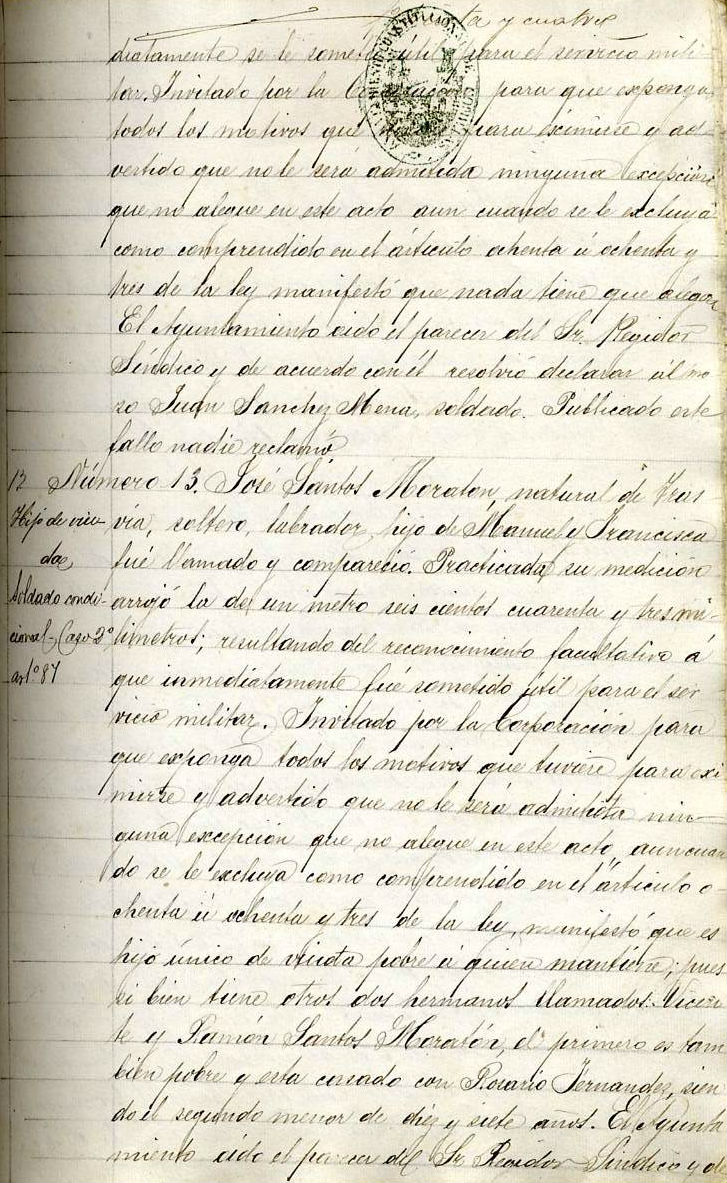 y cuatro
diatamente se le sometió útil para el servicio mili-
tar. Invitado por la Corporación para que exponga
todos los motivos que para eximirse y ad-
vertido que no le será admitida ninguna excepción
que no alegue en este acto aun cuando se le excluya
como comprendido en el artículo ochenta ú ochenta y
tres de la ley manifestó que nada tiene que alegar
El Ayuntamiento oido el parecer del Sr. Regidor
Síndico y de acuerdo con él resolvió declarar al mo
zo Juan Sanchez Mena, soldado. Publicado este
fallo nadie reclamó
13 Número 13. José Santos Moraton, natural de Tras
Hijo de viu-
da
Soldado condi-
cional - Caso 2º
artº 87
vía, soltero, labrador, hijo de Manuel y Francisca
fué llamado y compareció. Practicada su medición
arrojó la de un metro seis cientos cuarenta y tres mi-
límetros; resultando del reconocimiento facultativo á
que inmediatamente fué sometido útil para el ser
vicio militar. Invitado por la Corporación para
que exponga todos los motivos que tuviere para exi
mirse y advertido que no le será admitida nin-
guna excepción que no alegue en este acto, aun cuan
do se le excluya como comprendido en el artículo o-
chenta ú ochenta y tres de la ley, manifestó que es
hijo único de viuda pobre á quien mantiene; pues
si bien tiene otros dos hermanos llamados Vicen-
te y Ramón Santos Moratón, el primero es tam
bien pobre y esta casado con Rosario Fernandez, sien
do el segundo menor de diez y siete años. El Ayunta
miento oido el parecer del Sr Regidor Síndico y de